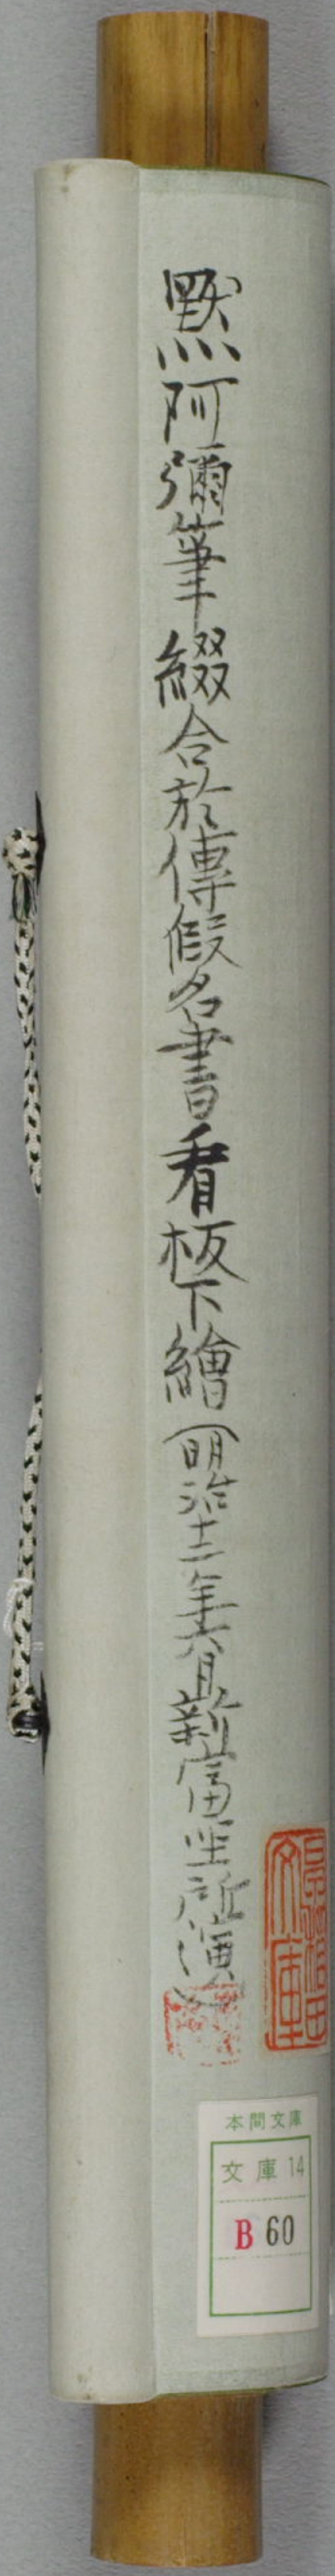 黙阿彌筆綴合於傳假名書看板下繪(明治十二年六月新富座所演)
本間文庫
文庫14
B 60